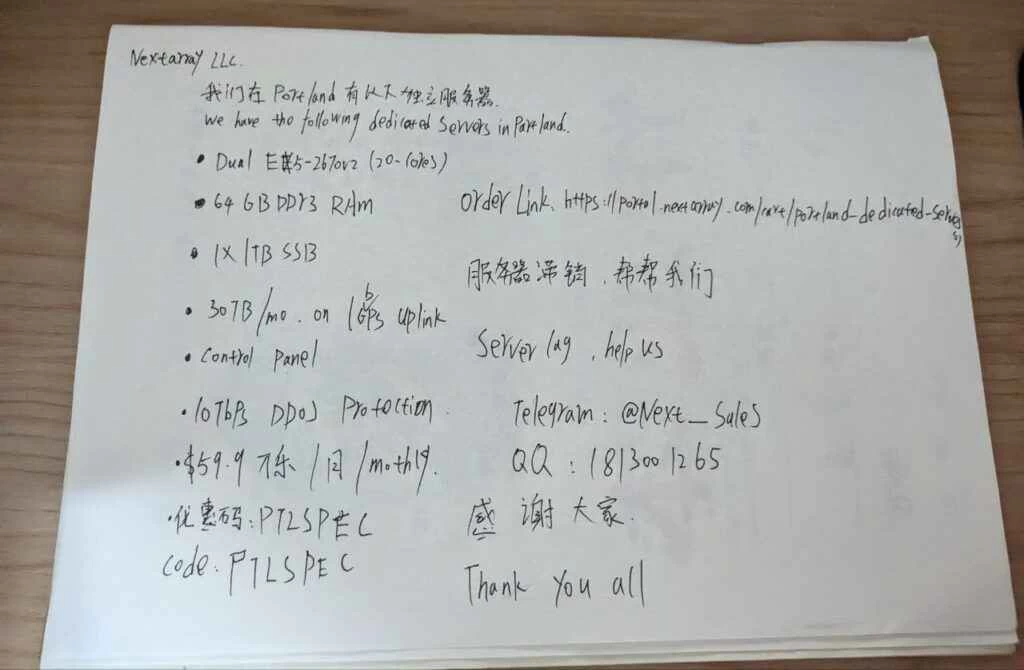 Nextarray LLC.
我们在 Portland 有以下独立服务器.
We have the following dedicated Servers in Portland.
• Dual E5-2670v2 (20-cores)
• 64 GB DDr3 RAM
• 1X 1TB SSB
• 30TB/mo. on 1Gbps uplink
• Control panel
• 10Tbps DDoS Protection.
• $59.9 /月 /mothly.
• 优惠码: PTLSPEC
Code. PTLSPEC
Order Link. https://portal.nextarray.com/cart/portland-dedicated-servers/
服务器滞销,帮帮我们
Server lag, help us
Telegram: @Next_Sales
QQ: 1813001265
感谢大家.
Thank You all